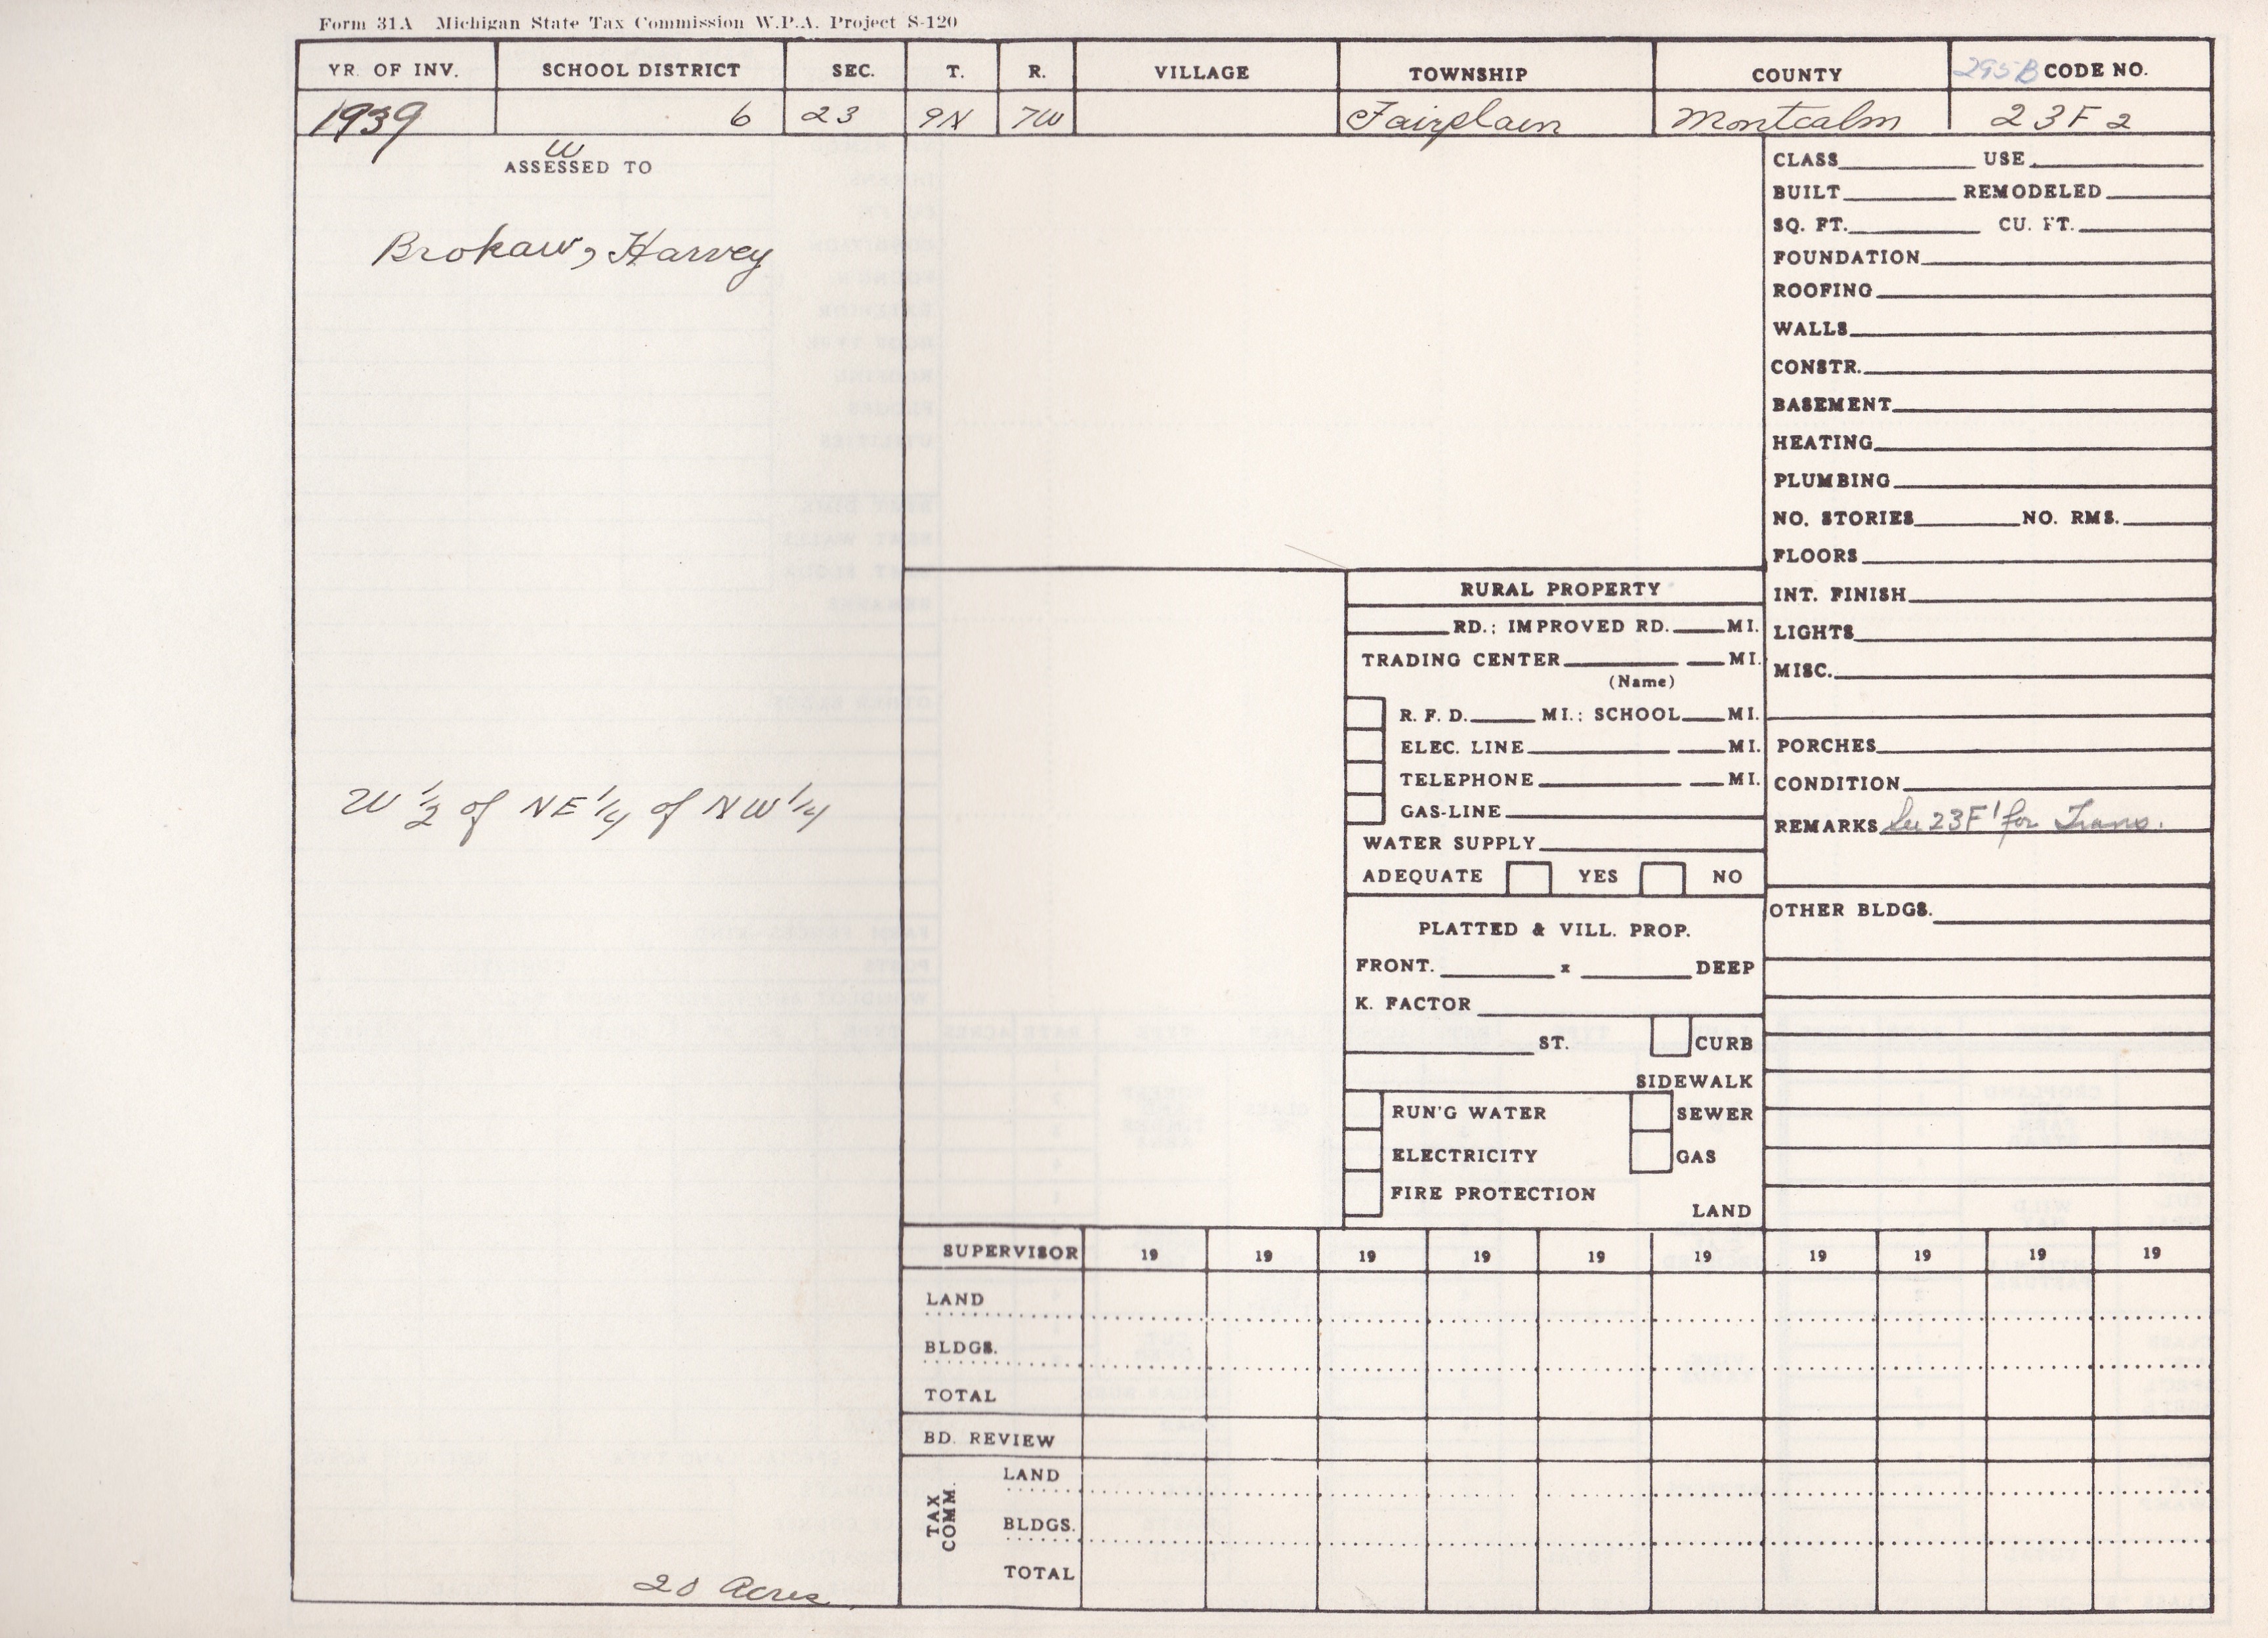 Form 31A Michigan State Tax Commission W.P.A. Project S-120
YR. OF INV. SCHOOL DISTRICT SEC. T. R. VILLAGE TOWNSHIP COUNTY 295B CODE NO.
1939 6 23 9N 7W Fairplain Montcalm 23F2
W
ASSESSED TO
Brokaw, Harvey
W 1/2 of NE 1/4 of NW 1/4
20 Acres
CLASS USE
BUILT REMODELED
SQ. FT. CU. FT.
FOUNDATION
ROOFING
WALLS
CONSTR.
BASEMENT
HEATING
PLUMBING
NO. STORIES NO. RMS.
FLOORS
INT. FINISH
LIGHTS
MISC.
PORCHES
CONDITION
REMARKS See 23F1 for Trans.
OTHER BLDGS.
RURAL PROPERTY
RD.; IMPROVED RD. MI.
TRADING CENTER MI.
(Name)
R. F. D. MI.; SCHOOL MI.
ELEC. LINE MI.
TELEPHONE MI.
GAS-LINE
WATER SUPPLY
ADEQUATE YES NO
PLATTED & VILL. PROP.
FRONT. x DEEP
K. FACTOR
ST. CURB
SIDEWALK
RUN'G WATER SEWER
ELECTRICITY GAS
FIRE PROTECTION
LAND
SUPERVISOR 19 19 19 19 19 19 19 19 19 19
LAND
BLDGS.
TOTAL
BD. REVIEW
TAX COMM.
LAND
BLDGS.
TOTAL